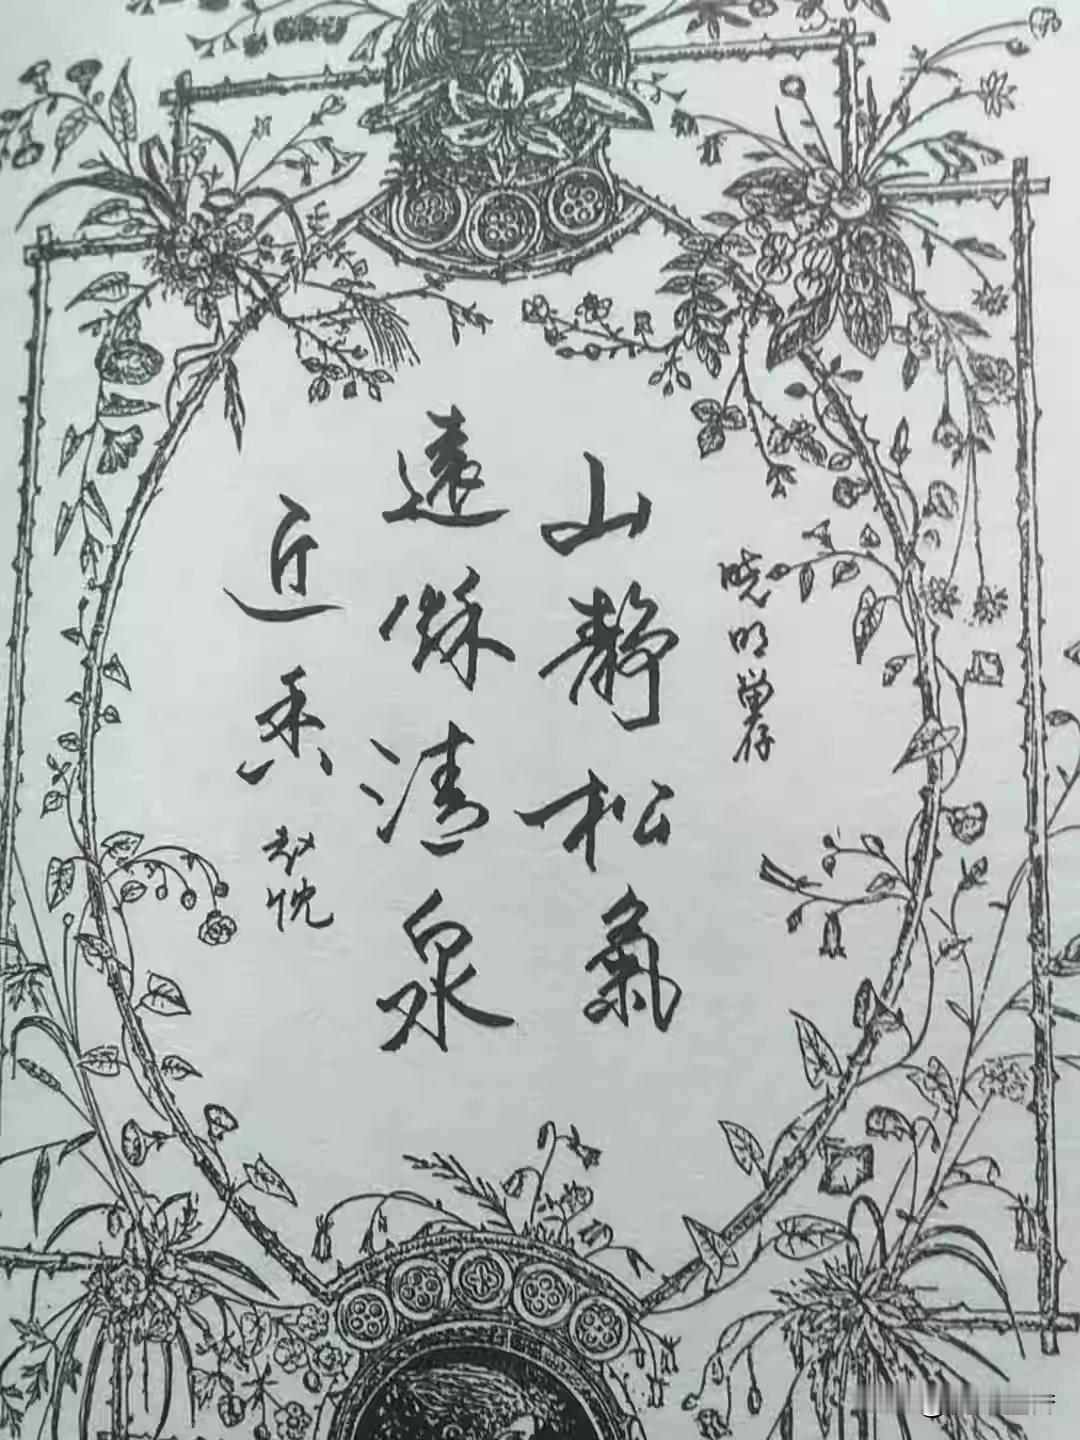 晓明留存
山静松氣
遠秌清泉
近香
赵忱